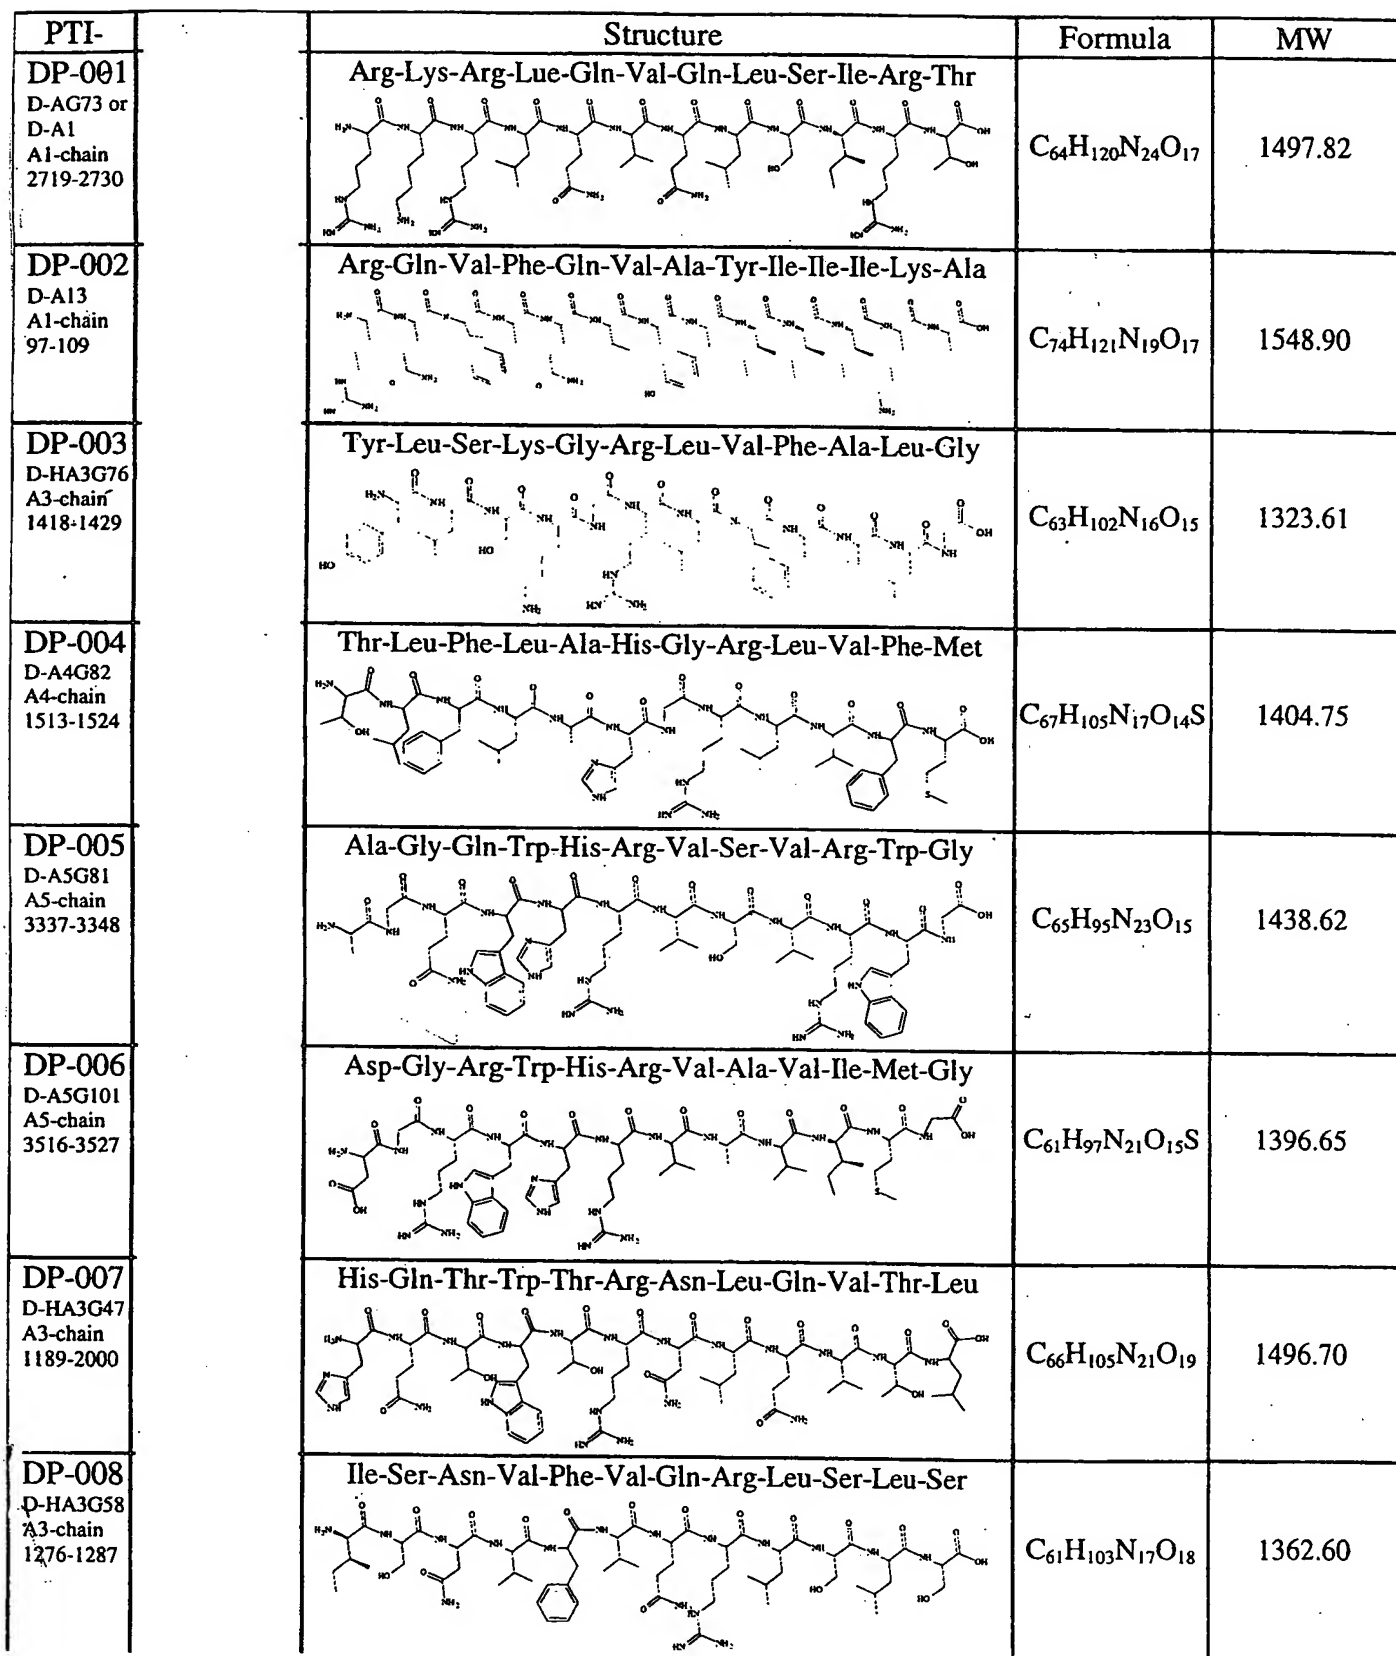 PTI- Structure Formula MW
DP-001
D-AG73 or
D-A1
A1-chain
2719-2730
Arg-Lys-Arg-Lue-Gln-Val-Gln-Leu-Ser-Ile-Arg-Thr
C64H120N24O17
1497.82
DP-002
D-A13
A1-chain
97-109
Arg-Gln-Val-Phe-Gln-Val-Ala-Tyr-Ile-Ile-Ile-Lys-Ala
C74H121N19O17
1548.90
DP-003
D-HA3G76
A3-chain
1418-1429
Tyr-Leu-Ser-Lys-Gly-Arg-Leu-Val-Phe-Ala-Leu-Gly
C63H102N16O15
1323.61
DP-004
D-A4G82
A4-chain
1513-1524
Thr-Leu-Phe-Leu-Ala-His-Gly-Arg-Leu-Val-Phe-Met
C67H105N17O14S
1404.75
DP-005
D-A5G81
A5-chain
3337-3348
Ala-Gly-Gln-Trp-His-Arg-Val-Ser-Val-Arg-Trp-Gly
C65H95N23O15
1438.62
DP-006
D-A5G101
A5-chain
3516-3527
Asp-Gly-Arg-Trp-His-Arg-Val-Ala-Val-Ile-Met-Gly
C61H97N21O15S
1396.65
DP-007
D-HA3G47
A3-chain
1189-2000
His-Gln-Thr-Trp-Thr-Arg-Asn-Leu-Gln-Val-Thr-Leu
C66H105N21O19
1496.70
DP-008
D-HA3G58
A3-chain
1276-1287
Ile-Ser-Asn-Val-Phe-Val-Gln-Arg-Leu-Ser-Leu-Ser
C61H103N17O18
1362.60